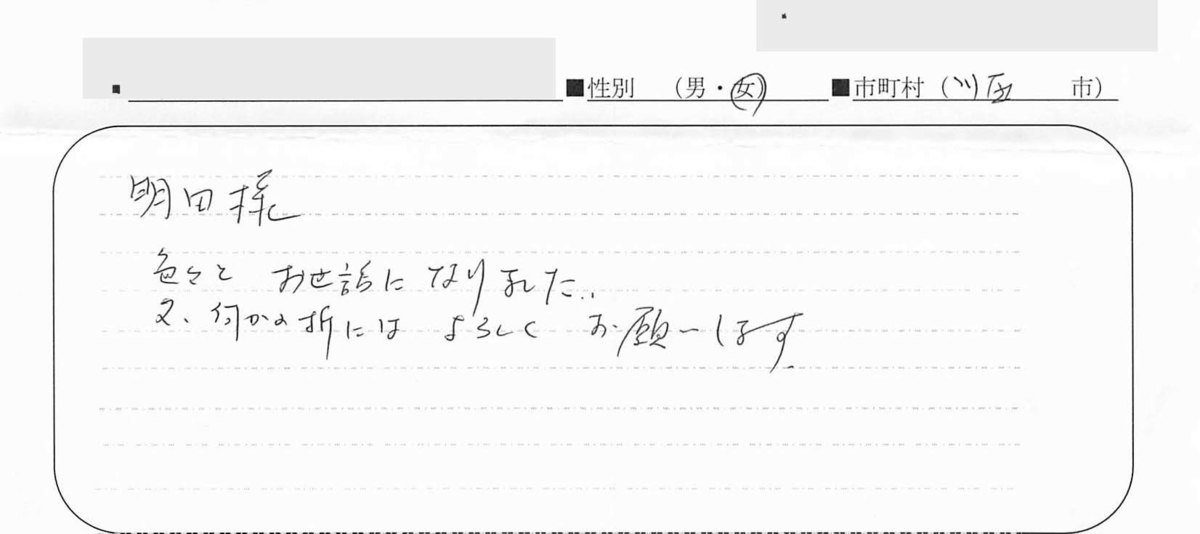 ■性別 （男・女） ■市町村（川区 市）
明田様
色々と お世話になりました。
又、何かの折には よろしく お願いします